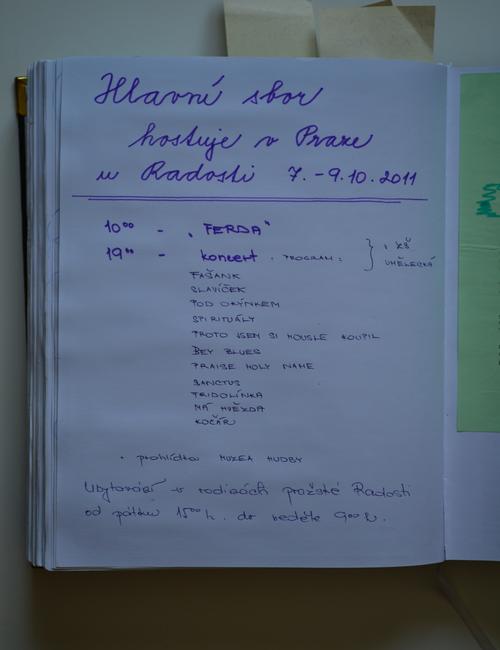 Hlavní sbor
hostuje v Praze
u Radosti 7.-9.10.2011
10⁰⁰ - „FERDA"
19⁰⁰ - koncert. PROGRAM: } i ZŠ
UMĚLECKÁ
FAŠANK
SLAVÍČEK
POD OKÝNKEM
SPIRITUÁLY
PROTO JSEM SI HOUSLE KOUPIL
BEY BLUES
PRAISE HOLY NAME
SANCTUS
TRIDOLÍNKA
MÁ HVĚZDA
KOČÁR
• prohlídka MUZEA HUDBY
Ubytování v rodinách pražské Radosti
od pátku 15⁰⁰h. do neděle 9⁰⁰h.